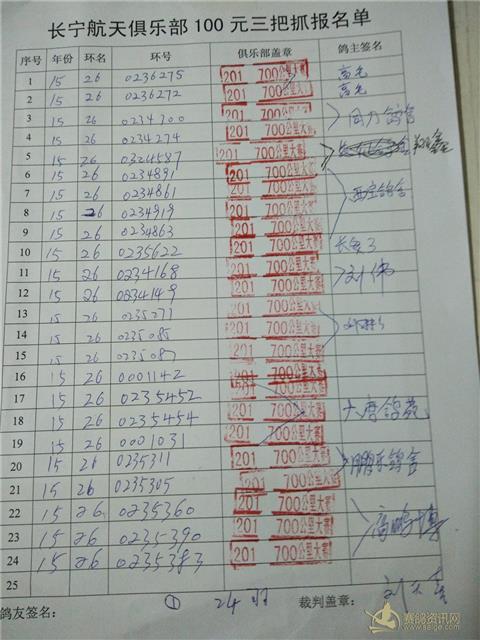 长宁航天俱乐部100元三把抓报名单
序号 年份 环名 环号 俱乐部盖章 鸽主签名
1 15 26 0236275 201 700公里大赛
2 15 26 0236272 201 700公里大赛
3 15 26 0234300 201 700公里大赛 四力鸽舍
4 15 26 0234274 201 700公里大赛
5 15 26 0324587 201 700公里大赛
6 15 26 0234891 201 700公里大赛
7 15 26 0234861 201 700公里大赛 西宝鸽舍
8 15 26 0234919 201 700公里大赛
9 15 26 0234863 201 700公里大赛
10 15 26 0235622 201 700公里大赛
11 15 26 0234168 201 700公里大赛 刘伟
12 15 26 0234149 201 700公里大赛
13 15 26 0235271 201 700公里大赛
14 15 26 0235085 201 700公里大赛
15 15 26 0235087 201 700公里大赛
16 15 26 0001142 201 700公里大赛
17 15 26 0235452 201 700公里大赛
18 15 26 0235454 201 700公里大赛 大唐鸽苑
19 15 26 0001031 201 700公里大赛
20 15 26 0235311 201 700公里大赛 鹏乐鸽舍
21 15 26 0235305 201 700公里大赛
22 15 26 0235360 201 700公里大赛
23 15 26 0235390 201 700公里大赛
24 15 26 0235383 201 700公里大赛
25
鸽友签名： ① 24羽 裁判盖章：
赛鸽资讯网
www.saige.com